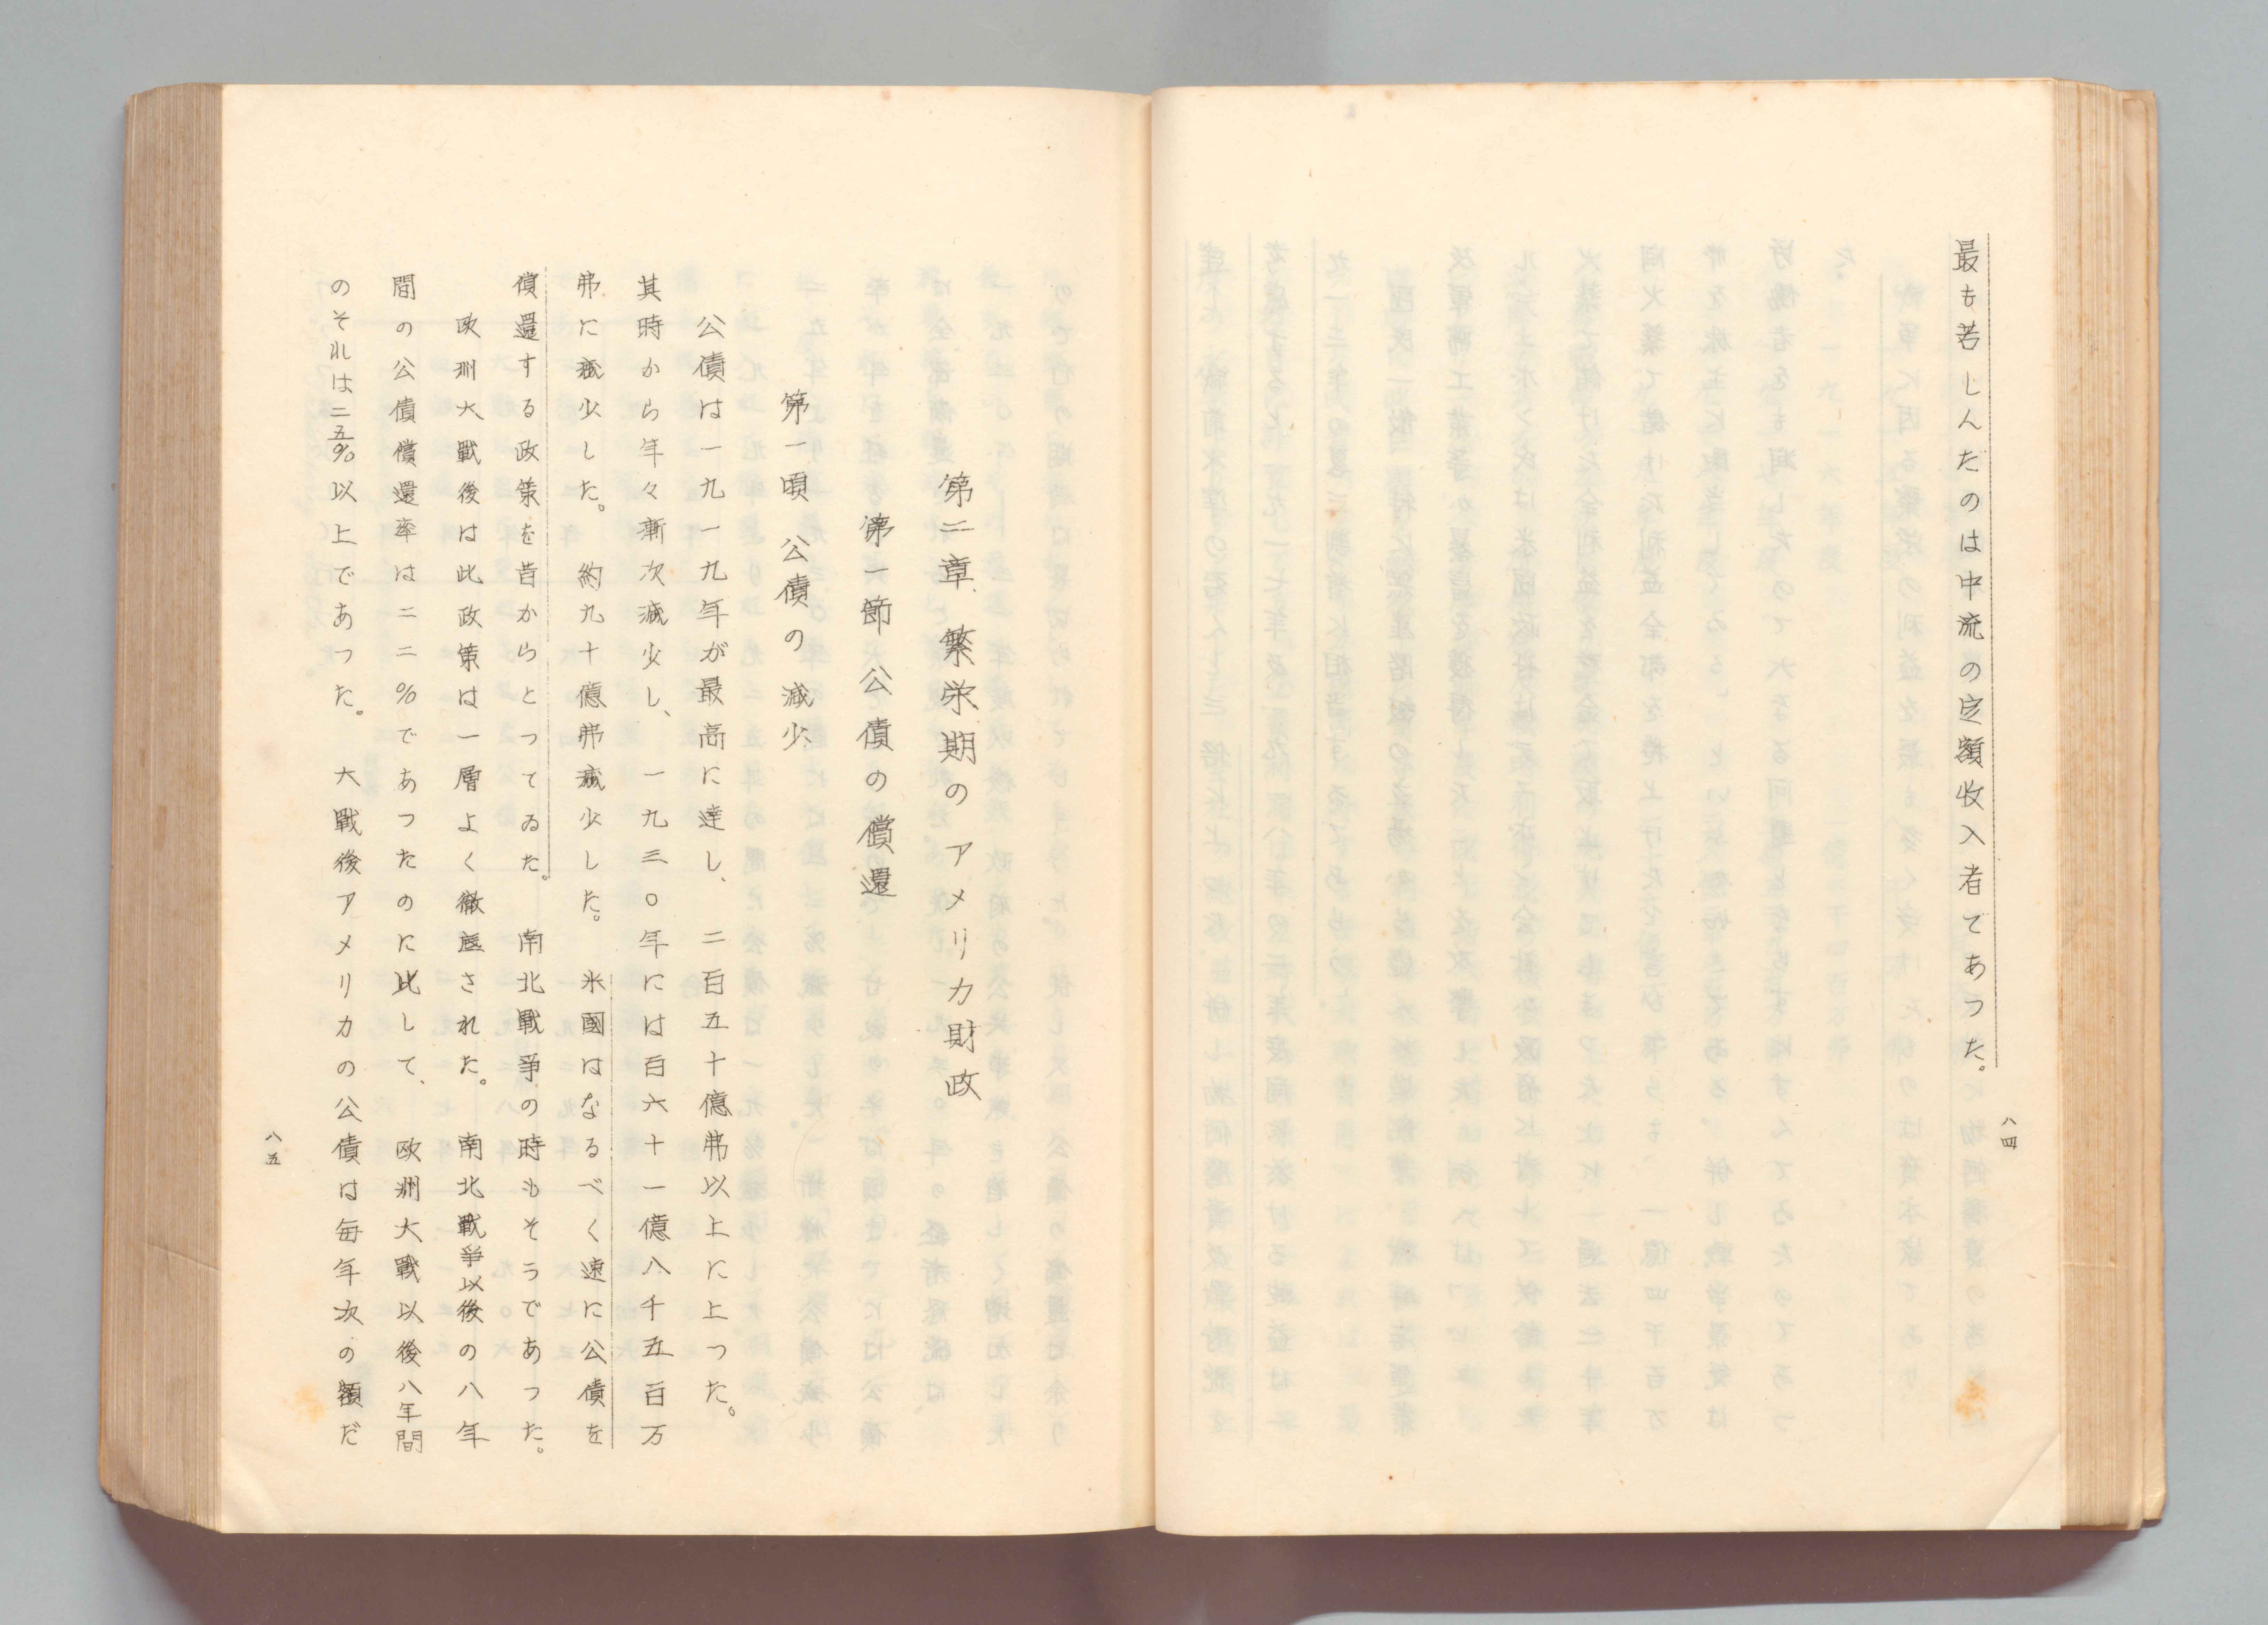 最も苦しんだのは中流の定額收入者であつた。
八四
第二章 繁栄期のアメリカ財政
第一節 公債の償還
第一項 公債の減少
公債は一九一九年が最高に達し、二百五十億弗以上に上つた。
其時から年々漸次減少し、一九三〇年には百六十一億八千五百万
弗に減少した。約九十億弗減少した。米國はなるべく速に公債を
償還する政策を昔からとつてゐた。南北戰爭の時もそうであつた。
欧洲大戰後は此政策は一層よく徹底された。南北戰爭以後の八年
間の公債償還率は二二%であつたのに比して、欧洲大戰以後八年間
のそれは二五%以上であつた。大戰後アメリカの公債は毎年次の額だ
八五